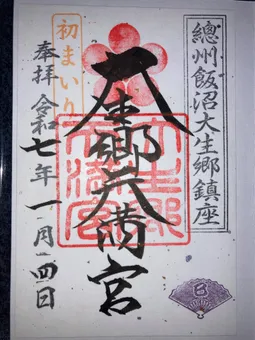 總州飯沼大生郷鎮座
大生郷天満宮
初まいり
奉拝 令和七年一月四日
巳